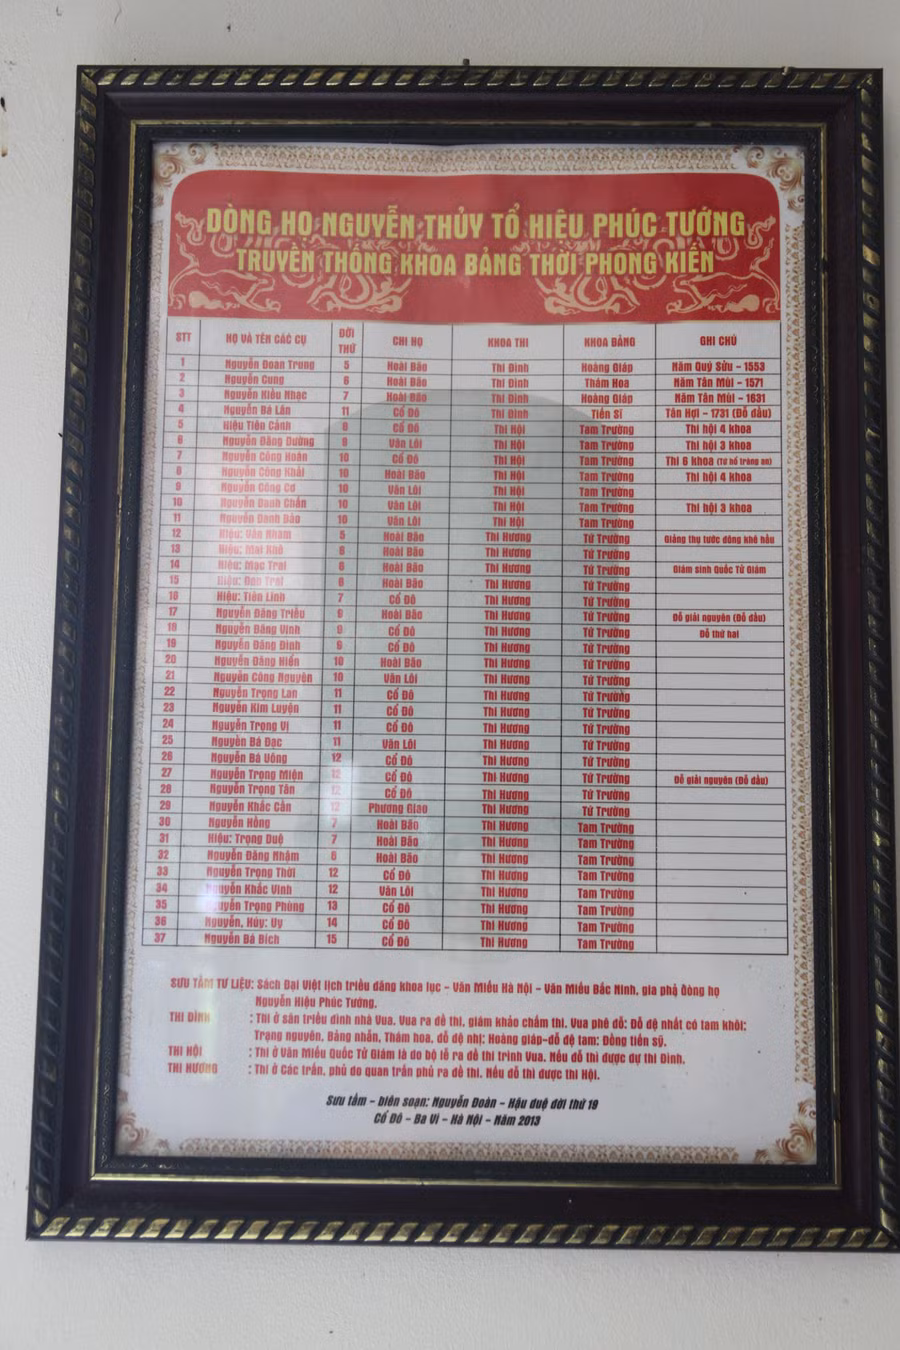 DÒNG HỌ NGUYỄN THỦY TỔ HIỆU PHÚC TƯỚNG
TRUYỀN THỐNG KHOA BẢNG THỜI PHONG KIẾN
STT HỌ VÀ TÊN CÁC CỤ ĐỜI THỨ CHI HỌ KHOA THI KHOA BẢNG GHI CHÚ
1 Nguyễn Doan Trung 5 Hoài Bão Thi Đình Hoàng Giáp Năm Quý Sửu – 1553
2 Nguyễn Cung 6 Hoài Bão Thi Đình Thám Hoa Năm Tân Mùi – 1571
3 Nguyễn Hiếu Nhạc 7 Hoài Bão Thi Đình Hoàng Giáp Năm Tân Mùi – 1631
4 Nguyễn Bá Lân 11 Cổ Đô Thi Đình Tiến Sĩ Tân Hợi – 1731 (Đỗ đầu)
5 Hiệu Tiên Cảnh 8 Cổ Đô Thi Hội Tam Trường Thi hội 4 khoa
6 Nguyễn Đăng Đường 8 Vân Lôi Thi Hội Tam Trường Thi hội 3 khoa
7 Nguyễn Công Hoàn 10 Cổ Đô Thi Hội Tam Trường Thi 6 khoa (Tứ hổ tràng an)
8 Nguyễn Công Khái 10 Hoài Bão Thi Hội Tam Trường Thi hội 4 khoa
9 Nguyễn Công Cơ 10 Vân Lôi Thi Hội Tam Trường
10 Nguyễn Danh Chấn 10 Vân Lôi Thi Hội Tam Trường Thi hội 3 khoa
11 Nguyễn Danh Bảo 10 Vân Lôi Thi Hội Tam Trường
12 Hiệu: Văn Nham 5 Hoài Bão Thi Hương Tứ Trường Giảng thụ tước đông khê hầu
13 Hiệu: Mai Khê 6 Hoài Bão Thi Hương Tứ Trường
14 Hiệu: Mạc Trai 6 Hoài Bão Thi Hương Tứ Trường Giám sinh Quốc Tử Giám
15 Hiệu: Đôn Trai 6 Hoài Bão Thi Hương Tứ Trường
16 Hiệu: Tiên Linh 7 Cổ Đô Thi Hương Tứ Trường
17 Nguyễn Đăng Triều 9 Hoài Bão Thi Hương Tứ Trường Đỗ giải nguyên (Đỗ đầu)
18 Nguyễn Đăng Vinh 9 Cổ Đô Thi Hương Tứ Trường Đỗ thứ hai
19 Nguyễn Đăng Đình 9 Cổ Đô Thi Hương Tứ Trường
20 Nguyễn Đăng Hiển 10 Hoài Bão Thi Hương Tứ Trường
21 Nguyễn Công Nguyên 10 Vân Lôi Thi Hương Tứ Trường
22 Nguyễn Trọng Lan 11 Cổ Đô Thi Hương Tứ Trường
23 Nguyễn Kim Luyện 11 Cổ Đô Thi Hương Tứ Trường
24 Nguyễn Trọng Vị 11 Cổ Đô Thi Hương Tứ Trường
25 Nguyễn Bá Đạc 11 Vân Lôi Thi Hương Tứ Trường
26 Nguyễn Bá Uông 12 Cổ Đô Thi Hương Tứ Trường
27 Nguyễn Trọng Miện 12 Cổ Đô Thi Hương Tứ Trường Đỗ giải nguyên (Đỗ đầu)
28 Nguyễn Trọng Tân 12 Cổ Đô Thi Hương Tứ Trường
29 Nguyễn Khắc Cần 12 Phương Giao Thi Hương Tứ Trường
30 Nguyễn Hồng 7 Hoài Bão Thi Hương Tam Trường
31 Hiệu: Trọng Duệ 7 Hoài Bão Thi Hương Tam Trường
32 Nguyễn Đăng Nhậm 8 Hoài Bão Thi Hương Tam Trường
33 Nguyễn Trọng Thời 12 Cổ Đô Thi Hương Tam Trường
34 Nguyễn Khắc Vinh 12 Vân Lôi Thi Hương Tam Trường
35 Nguyễn Trọng Phùng 13 Cổ Đô Thi Hương Tam Trường
36 Nguyễn, Húy: Uy 14 Cổ Đô Thi Hương Tam Trường
37 Nguyễn Bá Bích 15 Cổ Đô Thi Hương Tam Trường
SƯU TẦM TƯ LIỆU: Sách Đại Việt lịch triều đăng khoa lục – Văn Miếu Hà Nội – Văn Miếu Bắc Ninh, gia phả dòng họ
Nguyễn Hiệu Phúc Tướng.
THI ĐÌNH : Thi ở sân triều đình nhà Vua, Vua ra đề thi, giám khảo chấm thi. Vua phê đỗ: Đỗ đệ nhất có tam khôi:
Trạng nguyên, Bảng nhãn, Thám hoa, đỗ đệ nhị: Hoàng giáp–đỗ đệ tam: Đồng tiến sỹ.
THI HỘI : Thi ở Văn Miếu Quốc Tử Giám là do bộ lễ ra đề thi trình Vua. Nếu đỗ thì được dự thi Đình.
THI HƯƠNG : Thi ở Các trấn, phủ do quan trấn phủ ra đề thi. Nếu đỗ thì được thi Hội.
Sưu tầm – biên soạn: Nguyễn Đoàn – Hậu duệ đời thứ 19
Cổ Đô – Ba Vì – Hà Nội – Năm 2013